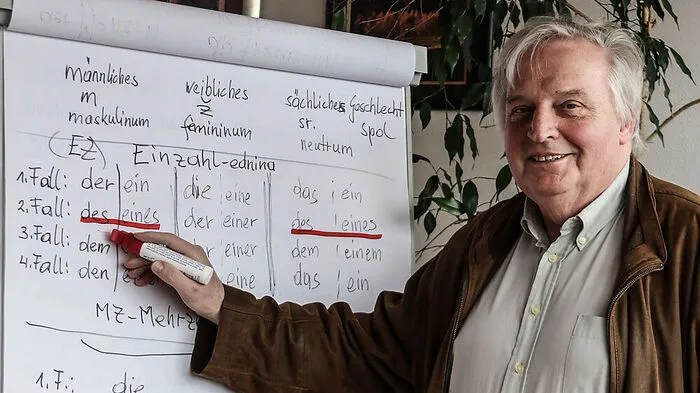 männliches weibliches sächliches Gaschlecht
m ž sr. spol
maskulinum femininum neutrum
(EZ) Einzahl-ednina
1. Fall: der ein die eine das ein
2. Fall: des eines der einer des eines
3. Fall: dem der einer dem einem
4. Fall: den die eine das ein
MZ-Mehrz
1. F.: die